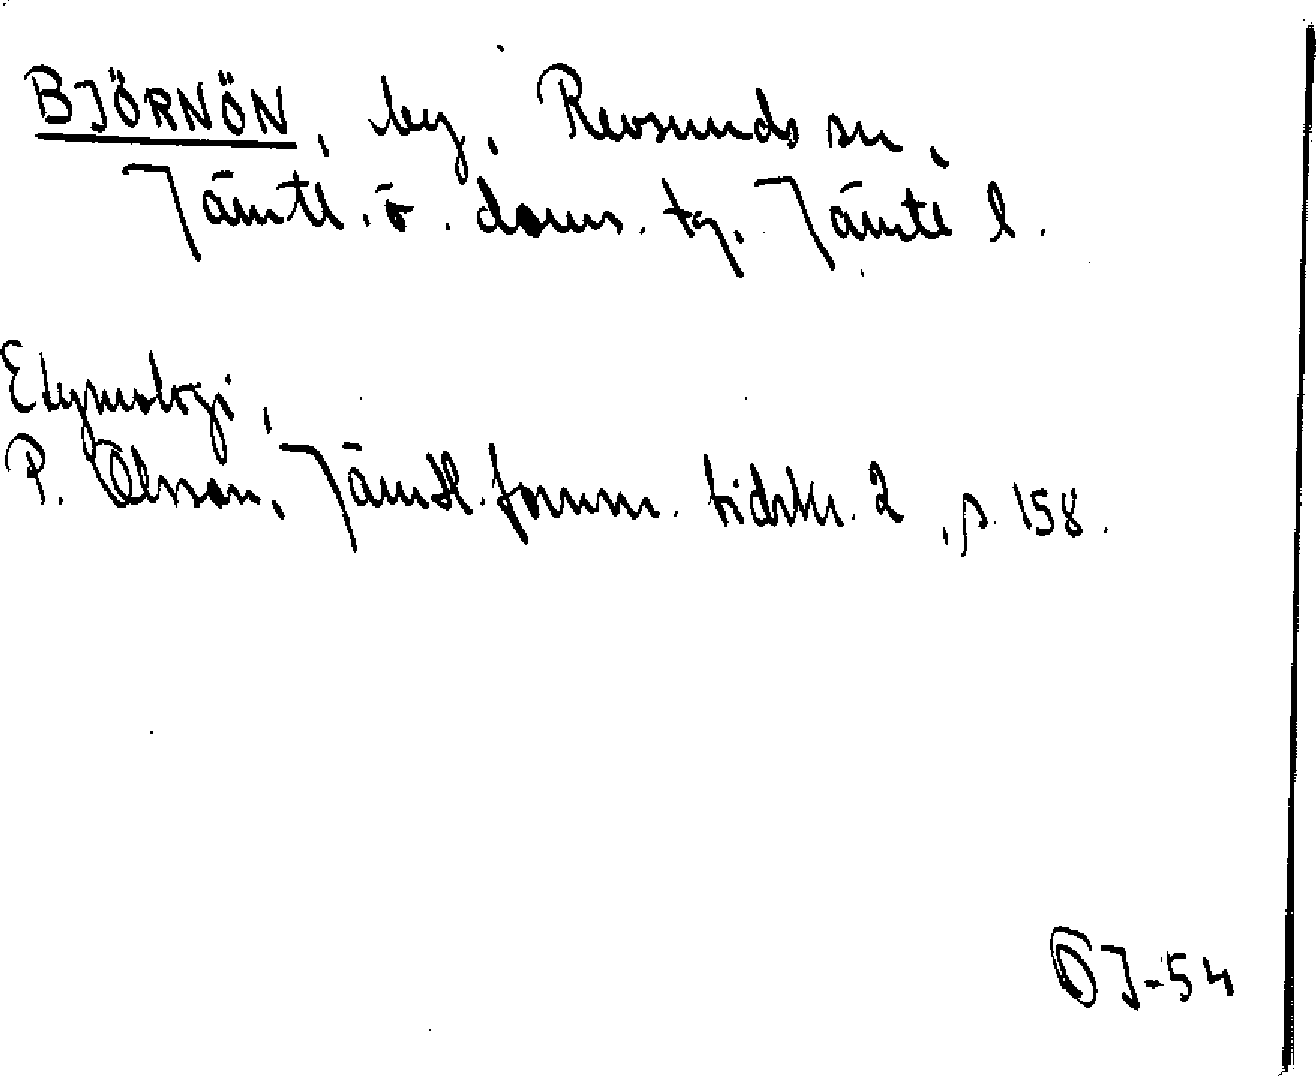 BJÖRNÖN, by, Revsunds sn,
Jämtl. ö. doms. tg. Jämtl l.
Etymologi,
P. Olsson, Jämtl. fornm. tidskr. 2, s. 158.
OJ-54